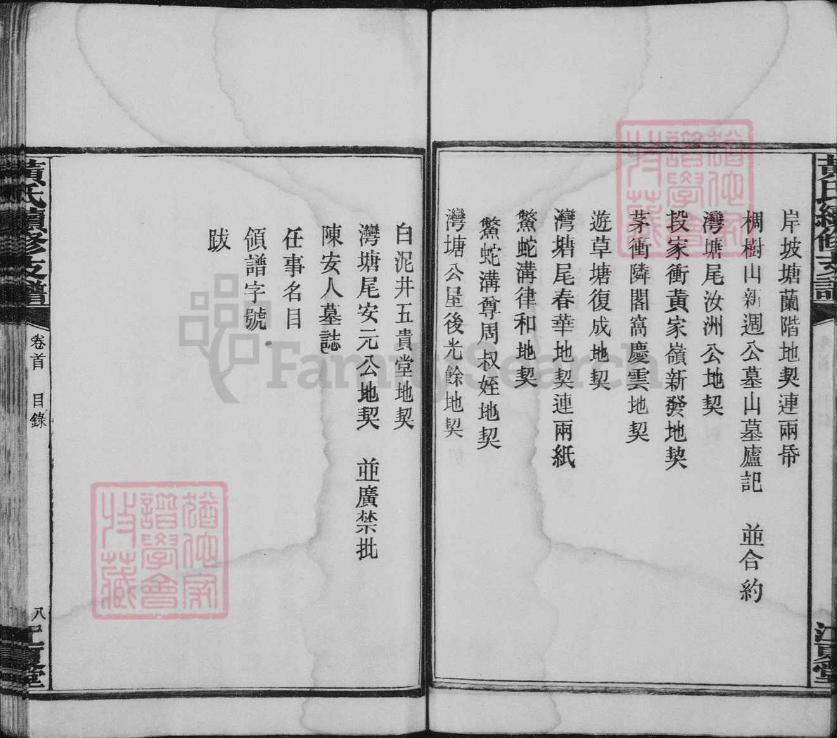 岸坡塘蘭階地契連兩帋
椆樹山新週公墓山墓廬記 並合約
灣塘尾汝洲公地契
投家衝黃家嶺新發地契
茅衝隣閣窩慶雲地契
遊草塘復成地契
灣塘尾春華地契連兩紙
鰲蛇溝律和地契
鰲蛇溝尊周叔姪地契
灣塘公屋後光餘地契
白泥井五貴堂地契
灣塘尾安元公地契 並廣禁批
陳安人墓誌
任事名目
領譜字號
跋
黃氏續修支譜
卷首 目錄
八
江夏堂
FamilySearch